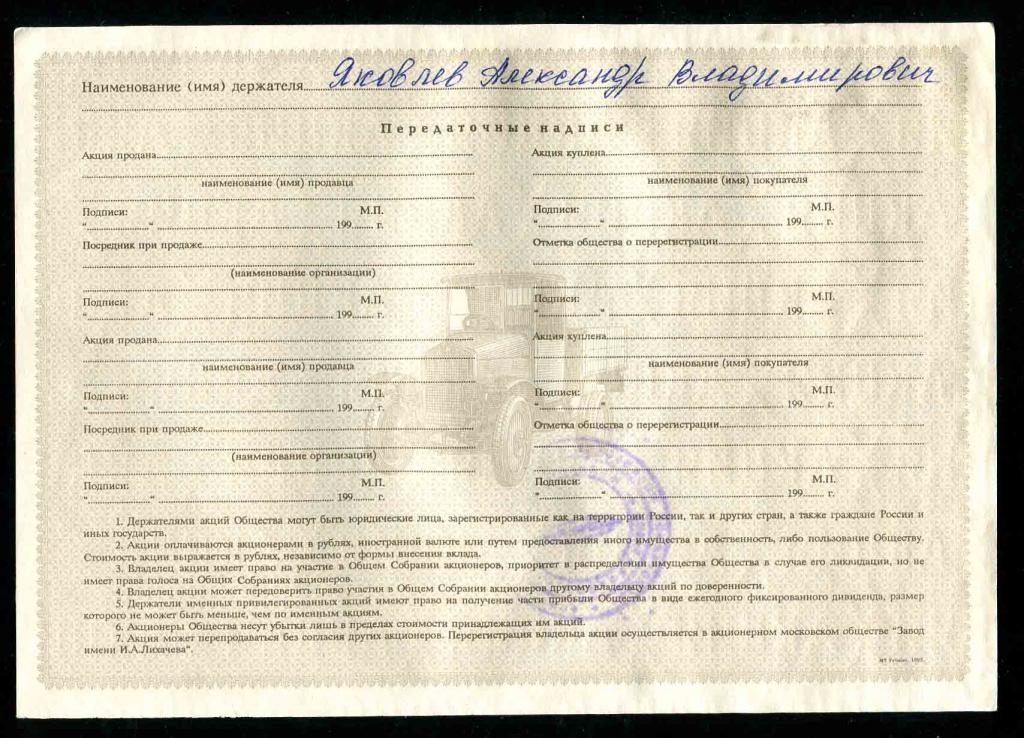 Наименование (имя) держателя Яковлев Александр Владимирович
Передаточные надписи
Акция продана
наименование (имя) продавца
Подписи: М.П.
" " 199 г.
Посредник при продаже
(наименование организации)
Подписи: М.П.
" " 199 г.
Акция продана
наименование (имя) продавца
Подписи: М.П.
" " 199 г.
Посредник при продаже
(наименование организации)
Подписи: М.П.
" " 199 г.
Акция куплена
наименование (имя) покупателя
Подписи: М.П.
" " 199 г.
Отметка общества о перерегистрации
Подписи: М.П.
" " 199 г.
Акция куплена
наименование (имя) покупателя
Подписи: М.П.
" " 199 г.
Отметка общества о перерегистрации
Подписи: М.П.
" " 199 г.
1. Держателями акций Общества могут быть юридические лица, зарегистрированные как на территории России, так и других стран, а также граждане России и
иных государств.
2. Акции оплачиваются акционерами в рублях, иностранной валюте или путем предоставления иного имущества в собственность, либо пользование Обществу.
Стоимость акции выражается в рублях, независимо от формы внесения вклада.
3. Владелец акции имеет право на участие в Общем Собрании акционеров, приоритет в распределении имущества Общества в случае его ликвидации, но не
имеет права голоса на Общих Собраниях акционеров.
4. Владелец акции может передоверить право участия в Общем Собрании акционеров другому владельцу акций по доверенности.
5. Держатели именных привилегированных акций имеют право на получение части прибыли Общества в виде ежегодного фиксированного дивиденда, размер
которого не может быть меньше, чем по именным акциям.
6. Акционеры Общества несут убытки лишь в пределах стоимости принадлежащих им акций.
7. Акция может перепродаваться без согласия других акционеров. Перерегистрация владельца акции осуществляется в акционерном московском обществе "Завод
имени И.А.Лихачева".